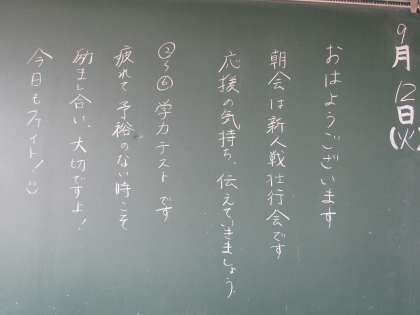 9月12日(火)
おはようございます
朝会は新人戦壮行会です
応援の気持ち、伝えていきましょう。
②〜⑥学力テストです
疲れて余裕のない時こそ
励まし合い、大切ですよ!
今日もファイト!